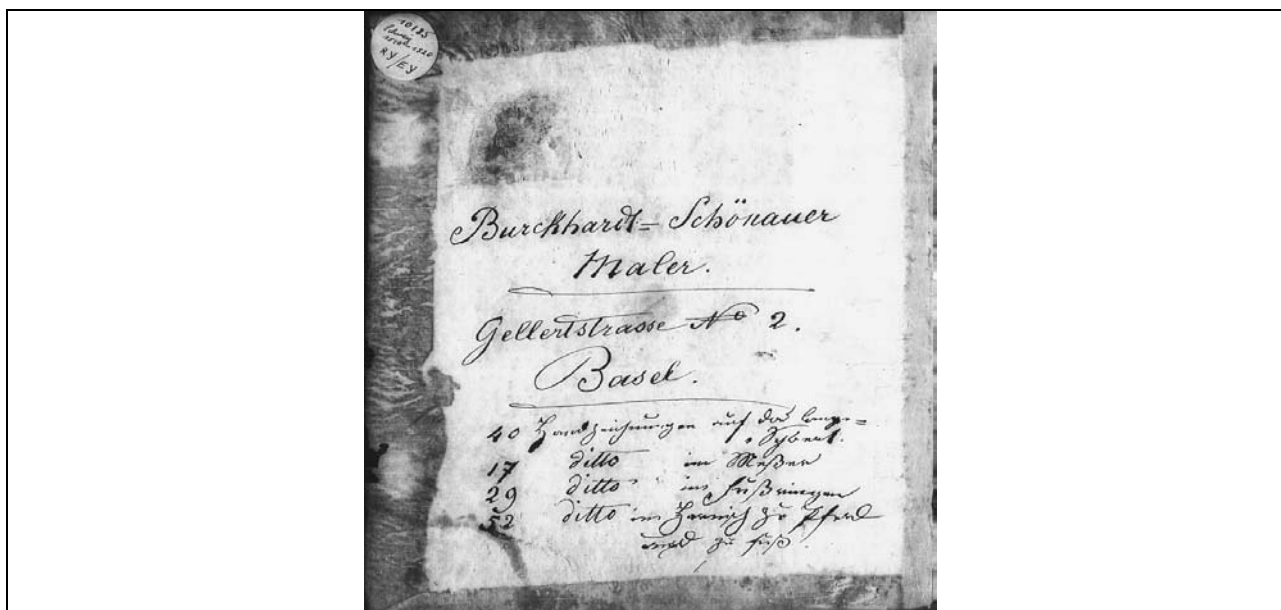 10135
1520
RY/EY
Burckhardt= Schönauer
Maler.
Gellertstrasse No 2.
Basel.
40 Handzeichnungen auf das lange=
Schwert.
17 ditto im Messer
29 ditto im Fußringen
52 ditto im Harnisch zu Pferd
und zu Fuß.